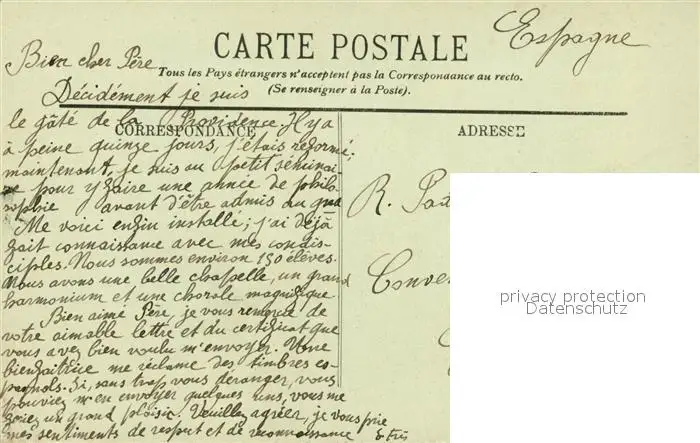 Espagne
CARTE POSTALE
Bien cher Père
Tous les Pays étrangers n'acceptent pas la Correspondance au recto.
(Se renseigner à la Poste).
Décidément je suis
le gâté de la Providence. Il y a
CORRESPONDANCE
ADRESSE
à peine quinze jours, j'étais réformé;
maintenant, je suis au petit séminai-
re pour y faire une année de philo-
sophie avant d'être admis au grd
Me voici enfin installé; j'ai déjà
fait connaissance avec mes condis-
ciples. Nous sommes environ 150 élèves.
Nous avons une belle chapelle, un grand
harmonium et une chorale magnifique
Bien aimé Père, je vous remercie de
votre aimable lettre et du certificat que
vous avez bien voulu m'envoyer. Une
bienfaitrice me réclame des timbres es-
pagnols. Si, sans trop vous déranger, vous
pouviez m'en envoyer quelques uns, vous me
feriez un grand plaisir. Veuillez agréer, je vous prie
mes sentiments de respect et de reconnaissance & très
R.
Conve
privacy protection
Datenschutz